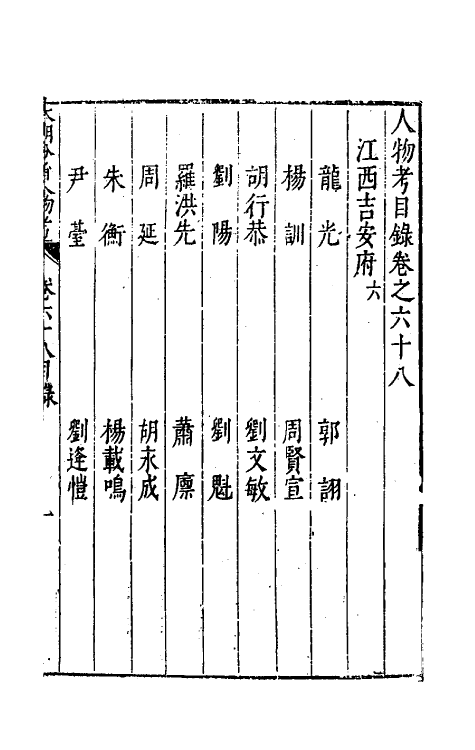 人物考目錄卷之六十八
江西吉安府六
龍光 郭詡
楊訓 周賢宣
胡行恭 劉文敏
劉陽 劉魁
羅洪先 蕭廪
周延 胡永成
朱衡 楊載鳴
尹䑓 劉逢愷
卷六十八目錄 一